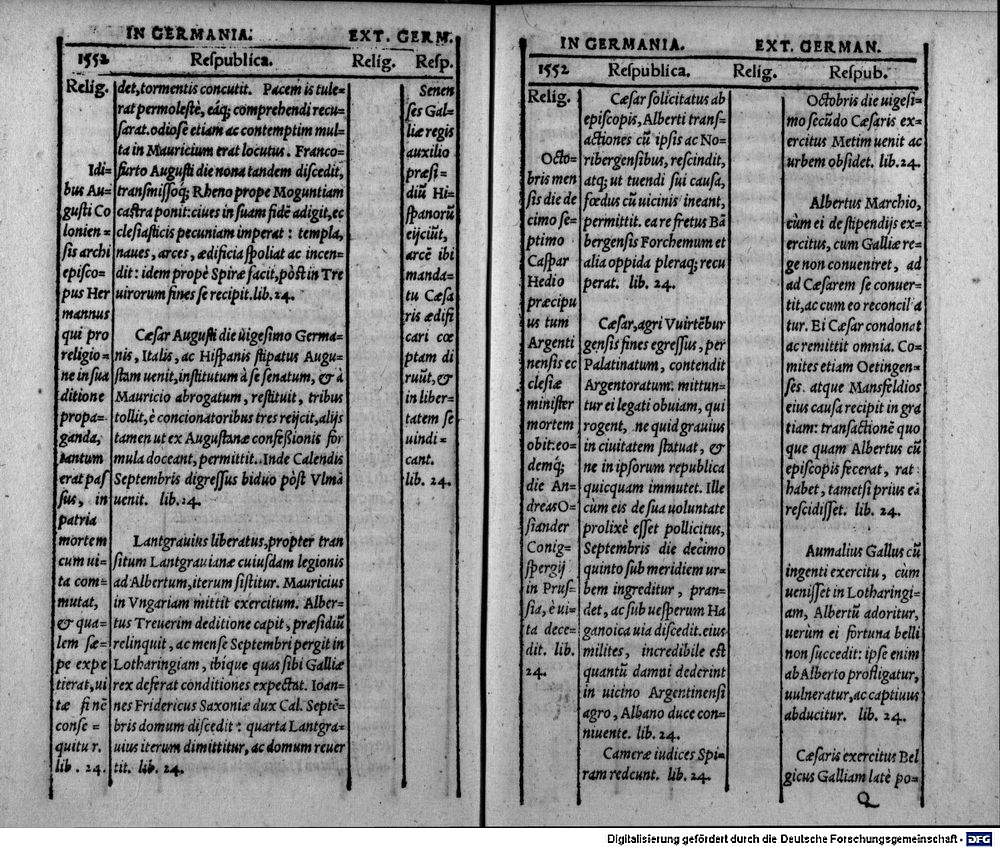 IN GERMANIA.
EXT. GERM.
1552
Reſpublica.
Relig.
Reſp.
Relig.
Idi-
bus Au-
guſti Co
lonien=
ſis archi
epiſco-
pus Her
mannus
qui pro
religio=
ne in ſua
ditione
propa-
ganda,
tantum
erat paſ
ſus, in
patria
mortem
cum ui-
ta com-
mutat,
& qua-
lem ſæ-
pe expe
tierat, ui
tæ finē
conſe=
quitur.
lib. 24.
det, tormentis concutit. Pacem is tule-
rat permoleſtè, eáq; comprehendi recu-
ſarat. odioſè etiam ac contemptim mul-
ta in Mauricium erat locutus. Franco-
furto Auguſti die nona tandem diſcedit,
tranſmiſſoq; Rheno prope Moguntiam
caſtra ponit: ciues in ſuam fidē adigit, ec
cleſiaſticis pecuniam imperat: templa,
naues, arces, ædificia ſpoliat ac incen-
dit: idem propè Spiræ facit, pòſt in Tre
uirorum fines ſe recipit. lib. 24.
Cæſar Auguſti die uigeſimo Germa-
nis, Italis, ac Hiſpanis ſtipatus Augu-
ſtam uenit, inſtitutum à ſe ſenatum, & à
Mauricio abrogatum, reſtituit, tribus
tollit, è concionatoribus tres reijcit, alijs
tamen ut ex Auguſtanæ confeßionis for
mula doceant, permittit. Inde Calendis
Septembris digreſſus biduo pòſt Vlmā
uenit. lib. 24.
Lantgrauius liberatus, propter tran
ſitum Lantgrauianæ cuiuſdam legionis
ad Albertum, iterum ſiſtitur. Mauricius
in Vngariam mittit exercitum. Alber-
tus Treuerim deditione capit, præſidiū
relinquit, ac menſe Septembri pergit in
Lotharingiam, ibique quas ſibi Galliæ
rex deferat conditiones expectat. Ioan-
nes Fridericus Saxoniæ dux Cal. Septē-
bris domum diſcedit: quarta Lantgra-
uius iterum dimittitur, ac domum reuer
tit. lib. 24.
Senen
ſes Gal-
liæ regis
auxilio
præſi-
diū Hi-
ſpanorū
eijciūt,
arcē ibi
manda-
tu Cæſa
ris ædifi
cari cœ
ptam di
ruūt, &
in liber-
tatem ſe
uindi=
cant.
lib. 24.
IN GERMANIA.
EXT. GERMAN.
1552
Reſpublica.
Relig.
Reſpub.
Relig.
Octo-
bris men
ſis die de
cimo ſe-
ptimo
Caſpar
Hedio
præcipu
us tum
Argenti
nenſis ec
cleſiæ
miniſter
mortem
obit: eo-
demq;
die An-
dreas O-
ſiander
Conig=
ſpergij
in Pruſ-
ſia, è ui-
ta dece-
dit. lib.
24.
Cæſar ſolicitatus ab
epiſcopis, Alberti tranſ-
actiones cū ipſis ac No-
ribergenſibus, reſcindit,
atq; ut tuendi ſui cauſa,
fœdus cū uicinis ineant,
permittit. ea re fretus Bā
bergenſis Forchemum et
alia oppida pleraq; recu
perat. lib. 24.
Cæſar, agri Vuirtēbur
genſis fines egreſſus, per
Palatinatum, contendit
Argentoratum. mittun-
tur ei legati obuiam, qui
rogent, ne quid grauius
in ciuitatem ſtatuat, &
ne in ipſorum republica
quicquam immutet. Ille
cùm eis de ſua uoluntate
prolixè eſſet pollicitus,
Septembris die decimo
quinto ſub meridiem ur-
bem ingreditur, pran-
det, ac ſub ueſperum Ha
ganoica uia diſcedit. eius
milites, incredibile eſt
quantū damni dederint
in uicino Argentinenſi
agro, Albano duce con-
niuente. lib. 24.
Cameræ iudices Spi-
ram redeunt. lib. 24.
Octobris die uigeſi-
mo ſecūdo Cæſaris ex-
ercitus Metim uenit ac
urbem obſidet. lib. 24.
Albertus Marchio,
cùm ei de ſtipendijs ex-
ercitus, cum Galliæ re-
ge non conueniret, ad
ad Cæſarem ſe conuer-
tit, ac cum eo reconcilia
tur. Ei Cæſar condonat
ac remittit omnia. Co-
mites etiam Oetingen-
ſes atque Mansfeldios
eius cauſa recipit in gra
tiam: tranſactionē quo
que quam Albertus cū
epiſcopis fecerat, rat
habet, tametſi prius eā
reſcidiſſet. lib. 24.
Aumalius Gallus cū
ingenti exercitu, cùm
ueniſſet in Lotharingi-
am, Albertū adoritur,
uerùm ei fortuna belli
non ſuccedit: ipſe enim
ab Alberto profligatur,
uulneratur, ac captiuus
abducitur. lib. 24.
Cæſaris exercitus Bel
gicus Galliam latè po-
Q
Digitalisierung gefördert durch die Deutsche Forschungsgemeinschaft - DFG